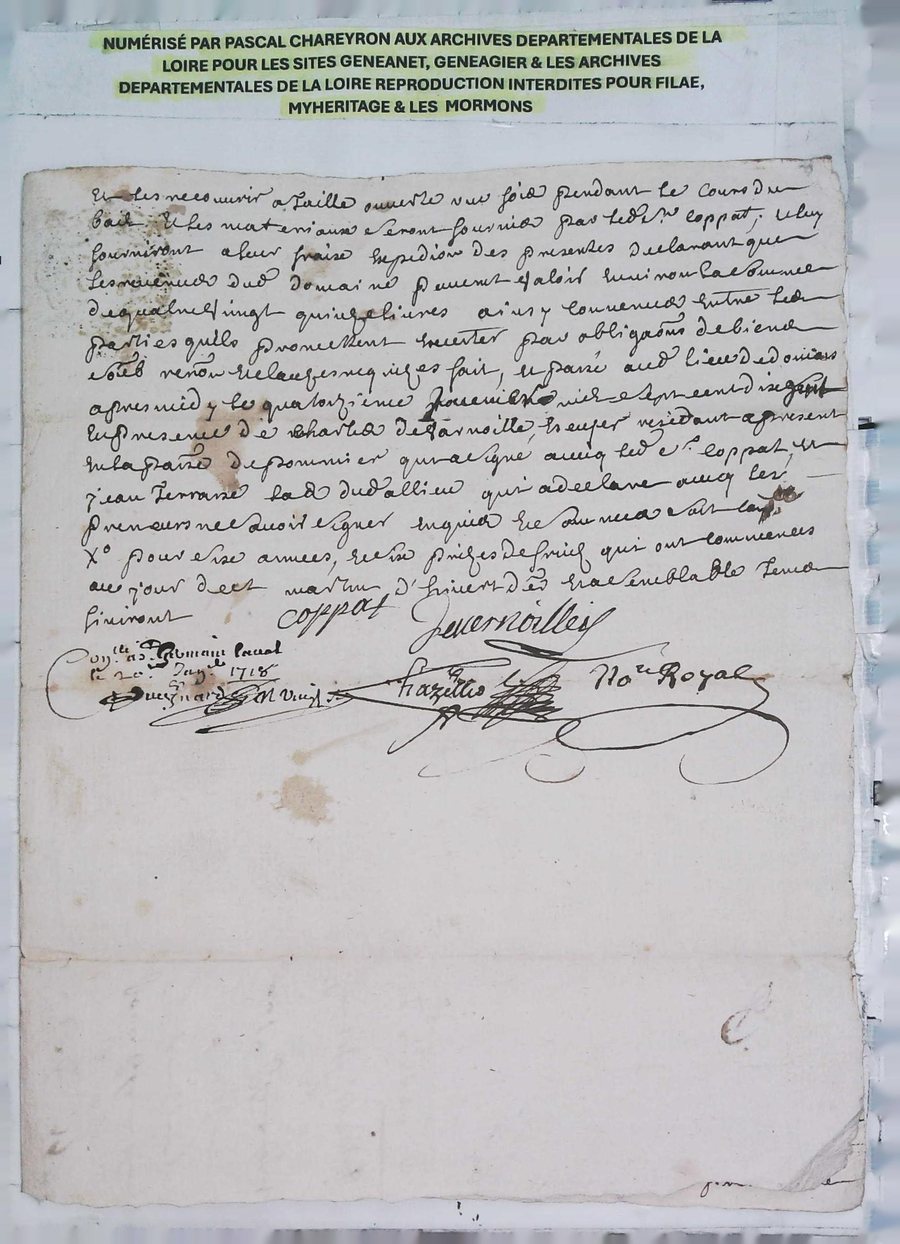 NUMÉRISÉ PAR PASCAL CHAREYRON AUX ARCHIVES DEPARTEMENTALES DE LA
LOIRE POUR LES SITES GENEANET, GENEAGIER & LES ARCHIVES
DEPARTEMENTALES DE LA LOIRE REPRODUCTION INTERDITES POUR FILAE,
MYHERITAGE & LES MORMONS
Et les recouvrir a taille ouverte une fois pendant le cours du
bail, Et les materiaux seront fournis par led sr coppat, et luy
fourniront a leur fraix Expedion des presentes declarant que
les revenus dud domaine peuvent valoir Environ la somme
de quatre vingt quinze livres ainsy convenus Entre les
parties qu'ils promettent executer par obligaons de biens
renon Et clauzes requizes fait, Et passé aud lieu de
apres midy le quatorzieme mil sept cent dix sept
En presence de Charles de resident a present
En la parse de pommier qui a signé avecq led sr coppat, Et
jean Terrasse lab dud allieu qui a declaré avecq les
preneurs ne scavoir signer Enquis Et sommes
Xo pour six années, Et six prizes de fruict qui ont commences
au jour de et martin d'hivert der Et a semblable Terme
finiront
coppat
Conlé a St Germain Laval
le 20e Janer 1718
Nore Royal